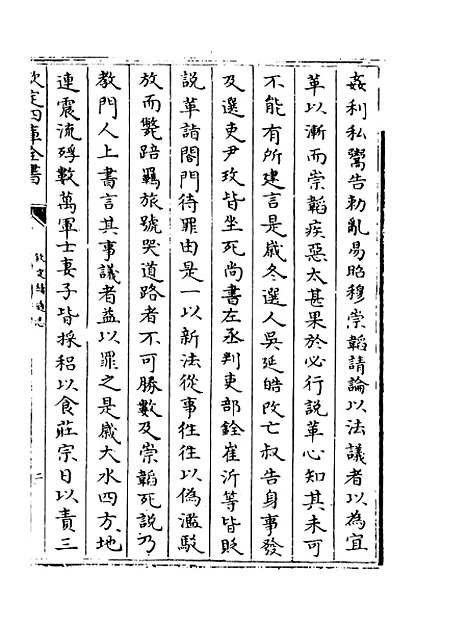 姦利私鬻告勅亂易昭穆崇韜請論以法議者以為宜
革以漸而崇韜疾惡太甚果於必行說革心知其未可
不能有所建言是歲冬選人吳延皓改亡叔告身事發
及選吏尹玫皆坐死尚書左丞判吏部銓崔沂等皆貶
說革詣閤門待罪由是一以新法從事往往以偽濫駮
放而斃踣羈旅號哭道路者不可勝數及崇韜死說乃
教門人上書言其事議者益以罪之是歲大水四方地
連震流殍數萬軍士妻子皆採稆以食莊宗日以責三
欽定四庫全書
欽定續通志
二